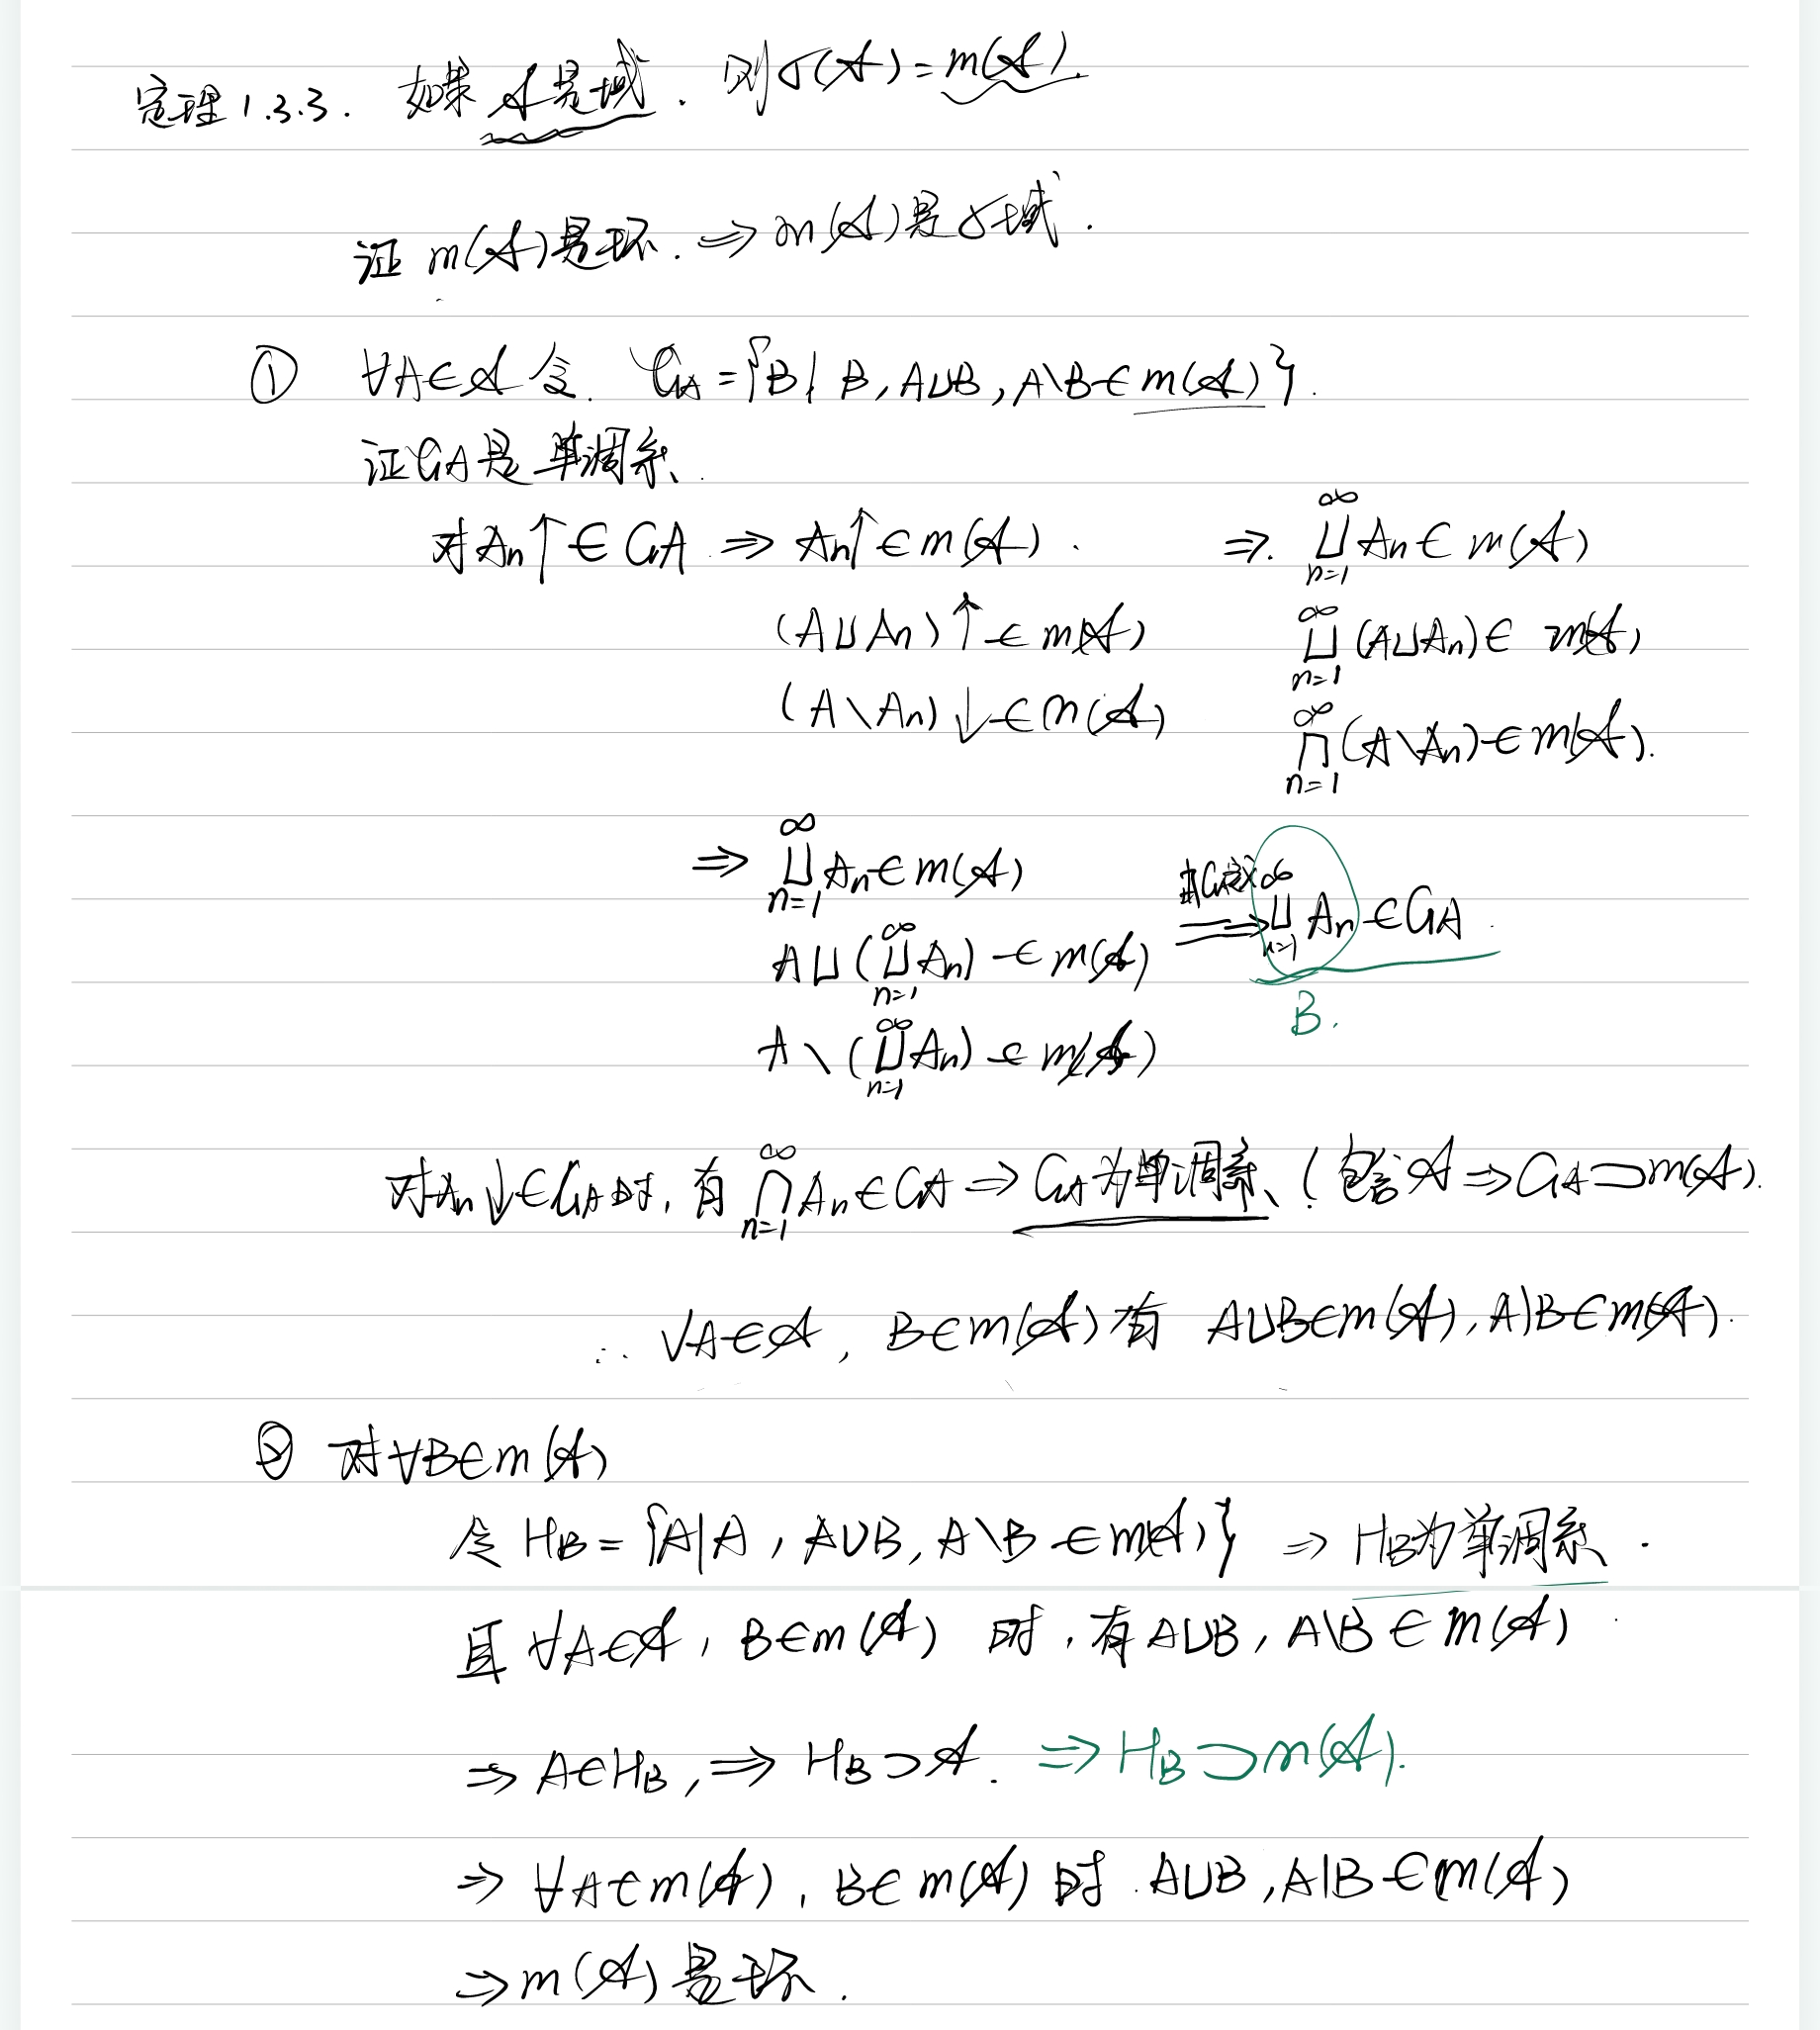 定理1.3.3. 如果 𝒜是域. 则σ(𝒜)=m(𝒜).
证 m(𝒜)是环. ⇒ m(𝒜)是σ域.
① ∀A∈𝒜 令. G_A={B| B, A∪B, A\B∈m(𝒜)}.
证G_A是 单调系.
对A_n↑∈G_A ⇒ A_n↑∈m(𝒜). ⇒. ∪_{n=1}^∞ A_n∈m(𝒜)
(A∪A_n)↑∈m(𝒜) ∪_{n=1}^∞ (A∪A_n)∈m(𝒜)
(A\A_n)↓∈m(𝒜) ∩_{n=1}^∞ (A\A_n)∈m(𝒜).
⇒ ∪_{n=1}^∞ A_n∈m(𝒜)
A∪(∪_{n=1}^∞ A_n)∈m(𝒜) 由G_A定义⇒ ∪_{n=1}^∞ A_n∈G_A.
B.
A\(∪_{n=1}^∞ A_n)∈m(𝒜)
对A_n↓∈G_A时, 有 ∩_{n=1}^∞ A_n∈G_A ⇒ G_A为单调系 (包含𝒜⇒G_A⊃m(𝒜).
∴ ∀A∈𝒜, B∈m(𝒜)有 A∪B∈m(𝒜), A\B∈m(𝒜).
② 对∀B∈m(𝒜)
令 H_B={A|A, A∪B, A\B∈m(𝒜)} ⇒ H_B为单调系.
且 ∀A∈𝒜, B∈m(𝒜) 时, 有 A∪B, A\B∈m(𝒜).
⇒ A∈H_B, ⇒ H_B⊃𝒜. ⇒ H_B⊃m(𝒜).
⇒ ∀A∈m(𝒜), B∈m(𝒜)时. A∪B, A\B∈m(𝒜)
⇒m(𝒜)是环.